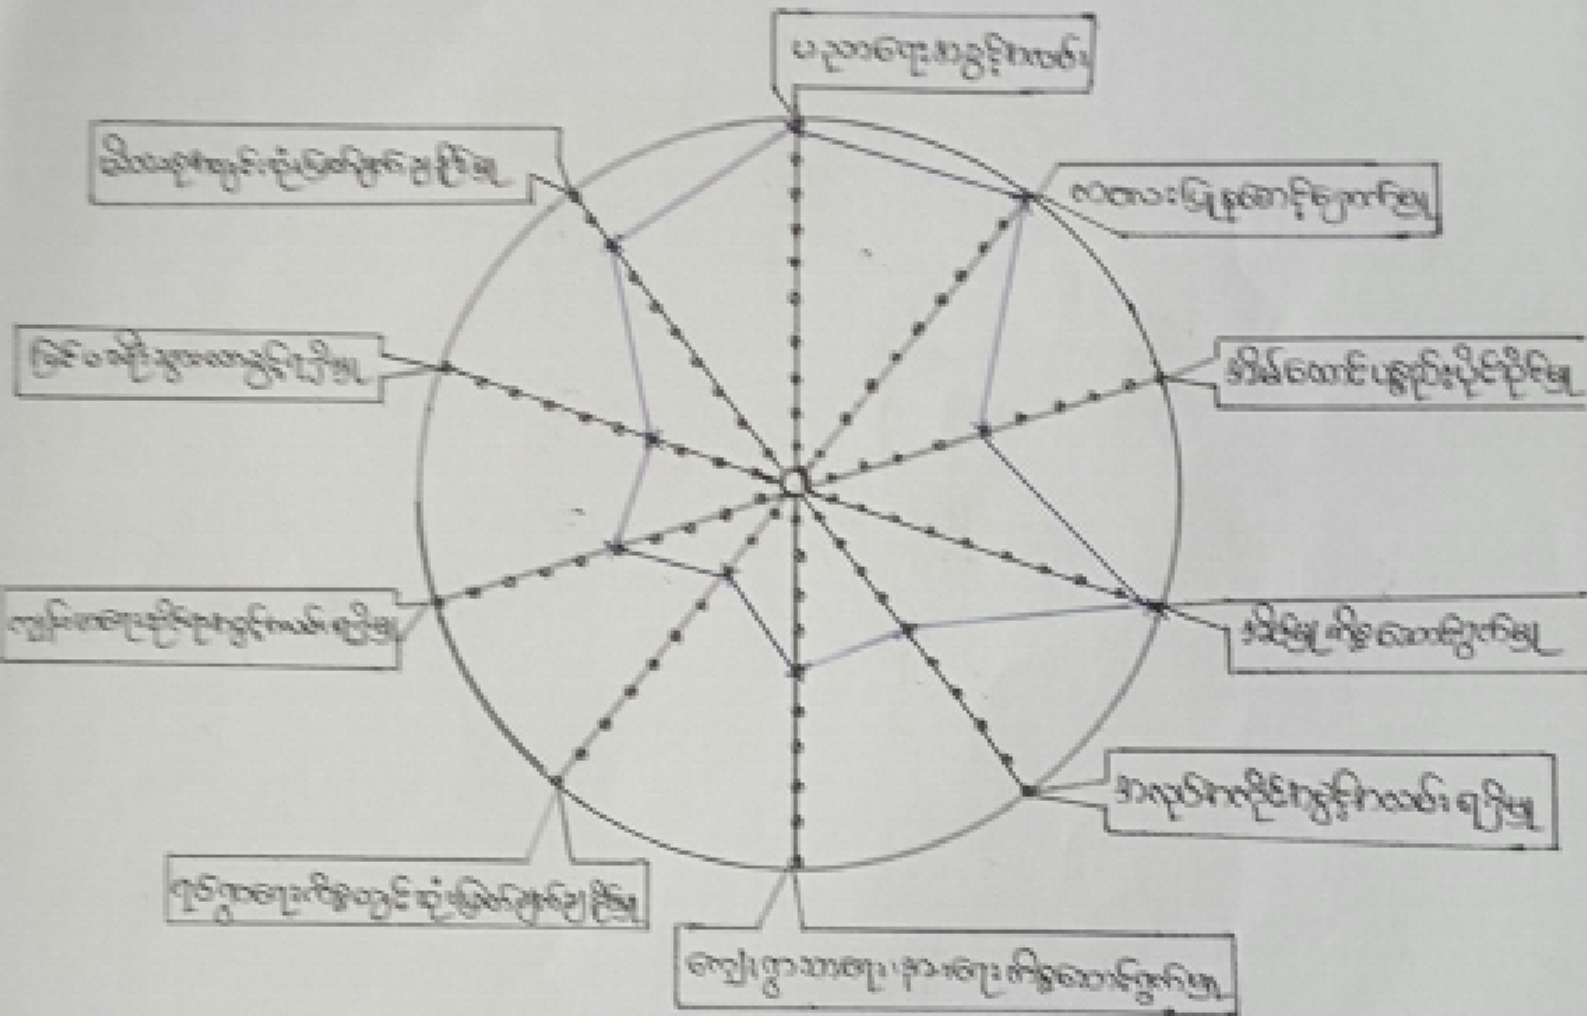 ပညာရေးအခွင့်အလမ်း
ကလေးပြုစုစောင့်ရှောက်မှု
အိမ်ထောင်ပစ္စည်းပိုင်ဆိုင်မှု
အိမ်မှုကိစ္စဆောင်ရွက်မှု
အလုပ်အကိုင်အခွင့်အလမ်း ရရှိမှု
ကျေးရွာသာရေး၊ နာရေးကိစ္စဆောင်ရွက်မှု
ရပ်ရွာရေးကိစ္စတွင်ဆုံးဖြတ်ချက်ချနိုင်မှု
ကျန်းမာရေးဆိုင်ရာအခွင့်အလမ်း ရရှိမှု
ပြင်ပသို့သွားလာခွင့်ရရှိမှု
မိသားစုအတွင်းဆုံးဖြတ်ချက်ချနိုင်မှု